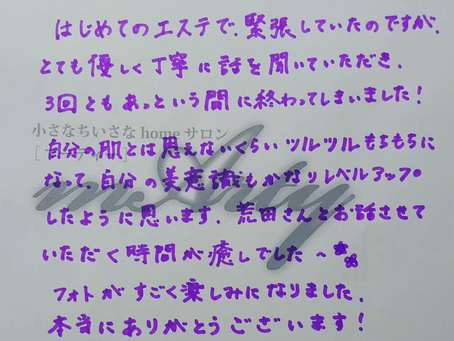 はじめてのエステで、緊張していたのですが、
とても優しく丁寧に話を聞いていただき、
3回ともあっという間に終わってしまいました！
小さなちいさな home サロン
自分の肌とは思えないくらいツルツルもちもちに
なって、自分の美意識もかなりレベルアップ
したように思います。荒田さんとお話させて
いただく時間が癒しでした～
フォトがすごく楽しみになりました。
本当にありがとうございます！